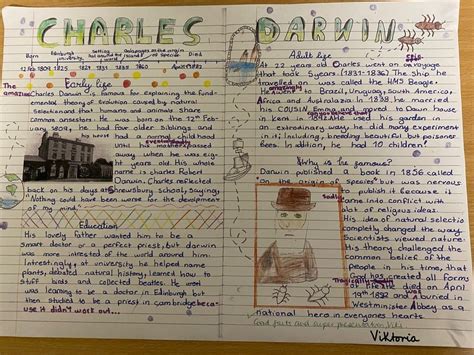 CHARLES DARWIN
Born Edinburgh university Setting Galapagos the origin Died
around the world Islands of Species
12 Feb 1809 1825 1831 1835 1859 April 1882
Early life
The amazing Charles Darwin is famous for explaining the fundamental theory of Evolution caused by natural
selection and that humans and animals share
common ancestors. He was born on the 12th Feb
1809, he had four older siblings and
his house
had a normal childhood
until his mother passed
away when he was eight
years old. His whole
name is Charles Robert
Darwin. Charles reflected
back on his days at Shrewsbury school, saying,
"Nothing could have been worse for the development
of my mind."
Education
His lovely father wanted him to be a
smart doctor or a perfect priest, but darwin
was more interested of the world around him.
Interestingly, at university he helped name
plants, debated natural history, learned how to
stuff birds and collected beetles. He work
was learning to be a doctor in Edinburgh but
then studied to be a priest in cambridge because it didn't work out...
Adult life
At 22 years old Charles went on a voyage
ship
that took 5 years (1831-1836) The ship he
travelled on was called the HMS Beagle.
He went to Brazil, Uruguay, South America,
Africa and Australia. In 1838 he married
his COUSIN, Emma and moved to Down house
in kent in. He used his garden in an
extraordinary way; he did many experiment
in it; Including, breeding beauties but poisoner
Bees. In addition, he had 10 children!
Why is he famous?
Darwin published a book in 1856 called
"on the origin of species" but was nervous
to publish it because it
came into conflict with
alot of religious ideas.
His idea of natural selection
completly changed the way
Scientists viewed nature.
His theory challenged the
common belief of the
people in his time, that
God has created all Forms
of life. He died on April
Tragically, sadly
19th 1882 and was burried in
Westminster Abbey as a
national hero in everyones hearts
Good facts and super presentation Viki
Viktoria